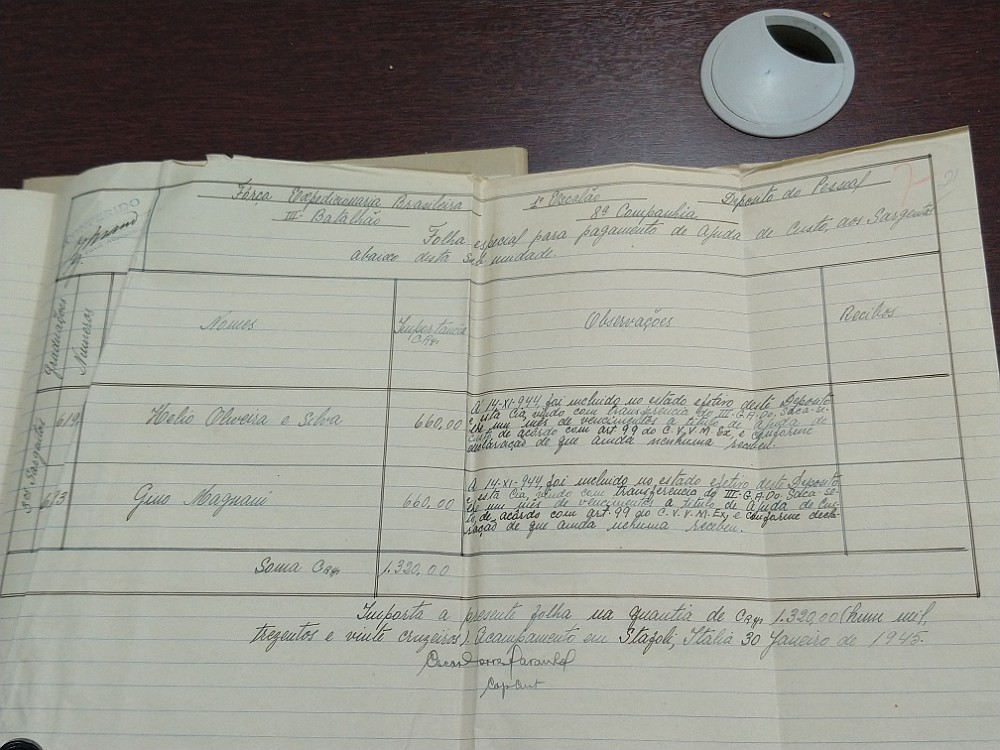 Fôrça Expedicionaria Brasileira 1º Escalão Deposito do Pessoal
III Batalhão 8ª Companhia
Folha especial para pagamento de Ajuda de Custo, aos Sargentos
abaixo desta Sub unidade.
DEFERIDO
Graduações
Numeros
Nomes
Importância
CR$
Observações
Recibos
3ºs Sargentos
619
Helio Oliveira e Silva
660,00
A 14-XI-944, foi incluido no estado efetivo deste Deposito
e esta Cia, vindo com transferencia do III-G.A.Do. Saca-se-
lhe um mês de vencimentos a titulo de ajuda de
Custo, de acôrdo com art 99 do C.V.V.M.Ex, e conforme
declaração de que ainda nenhuma recebeu.
693
Gino Magnani
660.00
A 14-XI-944, foi incluido no estado efetivo deste Deposito
e esta Cia, vindo com transferencia do III-G.A.Do. Saca-se-
lhe um mês de vencimentos a titulo de ajuda de Cus-
to, de acôrdo com art-99 do C.V.V.M.Ex, e conforme decla-
ração de que ainda nenhuma recebeu.
Soma CR$ 1.320,00
Importa a presente folha na quantia de CR$ 1.320,00 (hum mil,
trezentos e vinte cruzeiros). Acampamento em Stafoli, Itália 30 Janeiro de 1945.
Oscar Paranhos